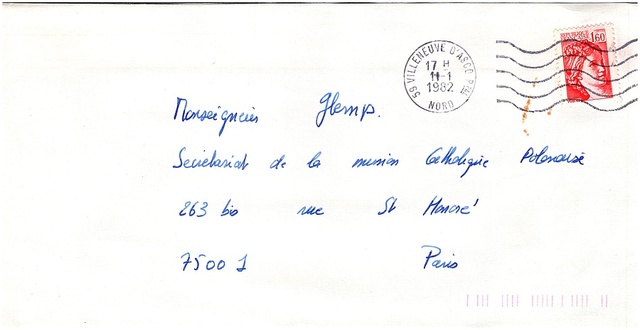 59 VILLENEUVE D'ASCQ PAL
17 H
11-1
1982
NORD
1,60
Monseigneur Glemp.
Secrétariat de la mission Catholique Polonaise
263 bis rue St Honoré
75001 Paris